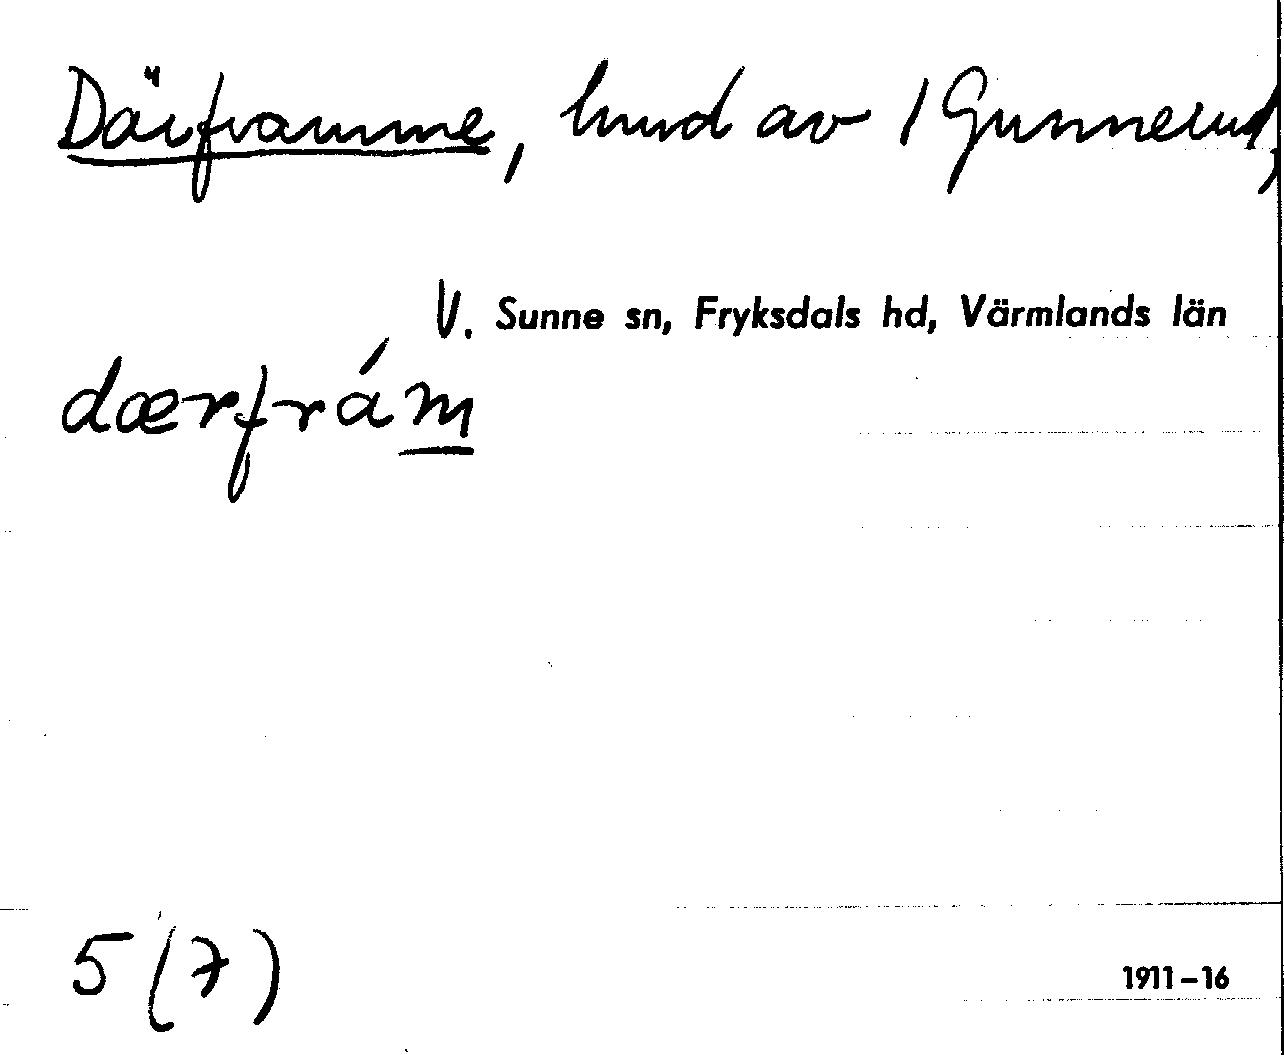 Därframme, hmd av 1 Gunnerud,
V. Sunne sn, Fryksdals hd, Värmlands län
dærfrám
5 (7)
1911-16